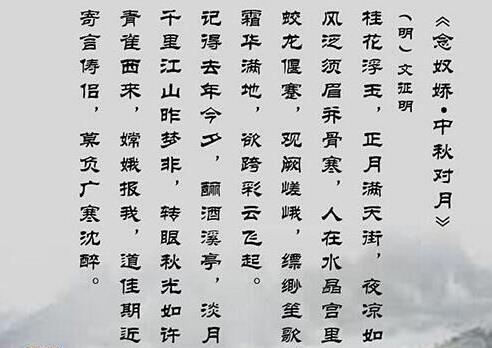 《念奴娇·中秋对月》
(明)文征明
桂花浮玉，正月满天街，夜凉如
风泛须眉并骨寒，人在水晶宫里
蛟龙偃蹇，观阙嵯峨，缥缈笙歌
霜华满地，欲跨彩云飞起。
记得去年今夕，酾酒溪亭，淡月
千里江山昨梦非，转眼秋光如许
青雀西来，嫦娥报我，道佳期近
寄言俦侣，莫负广寒沈醉。